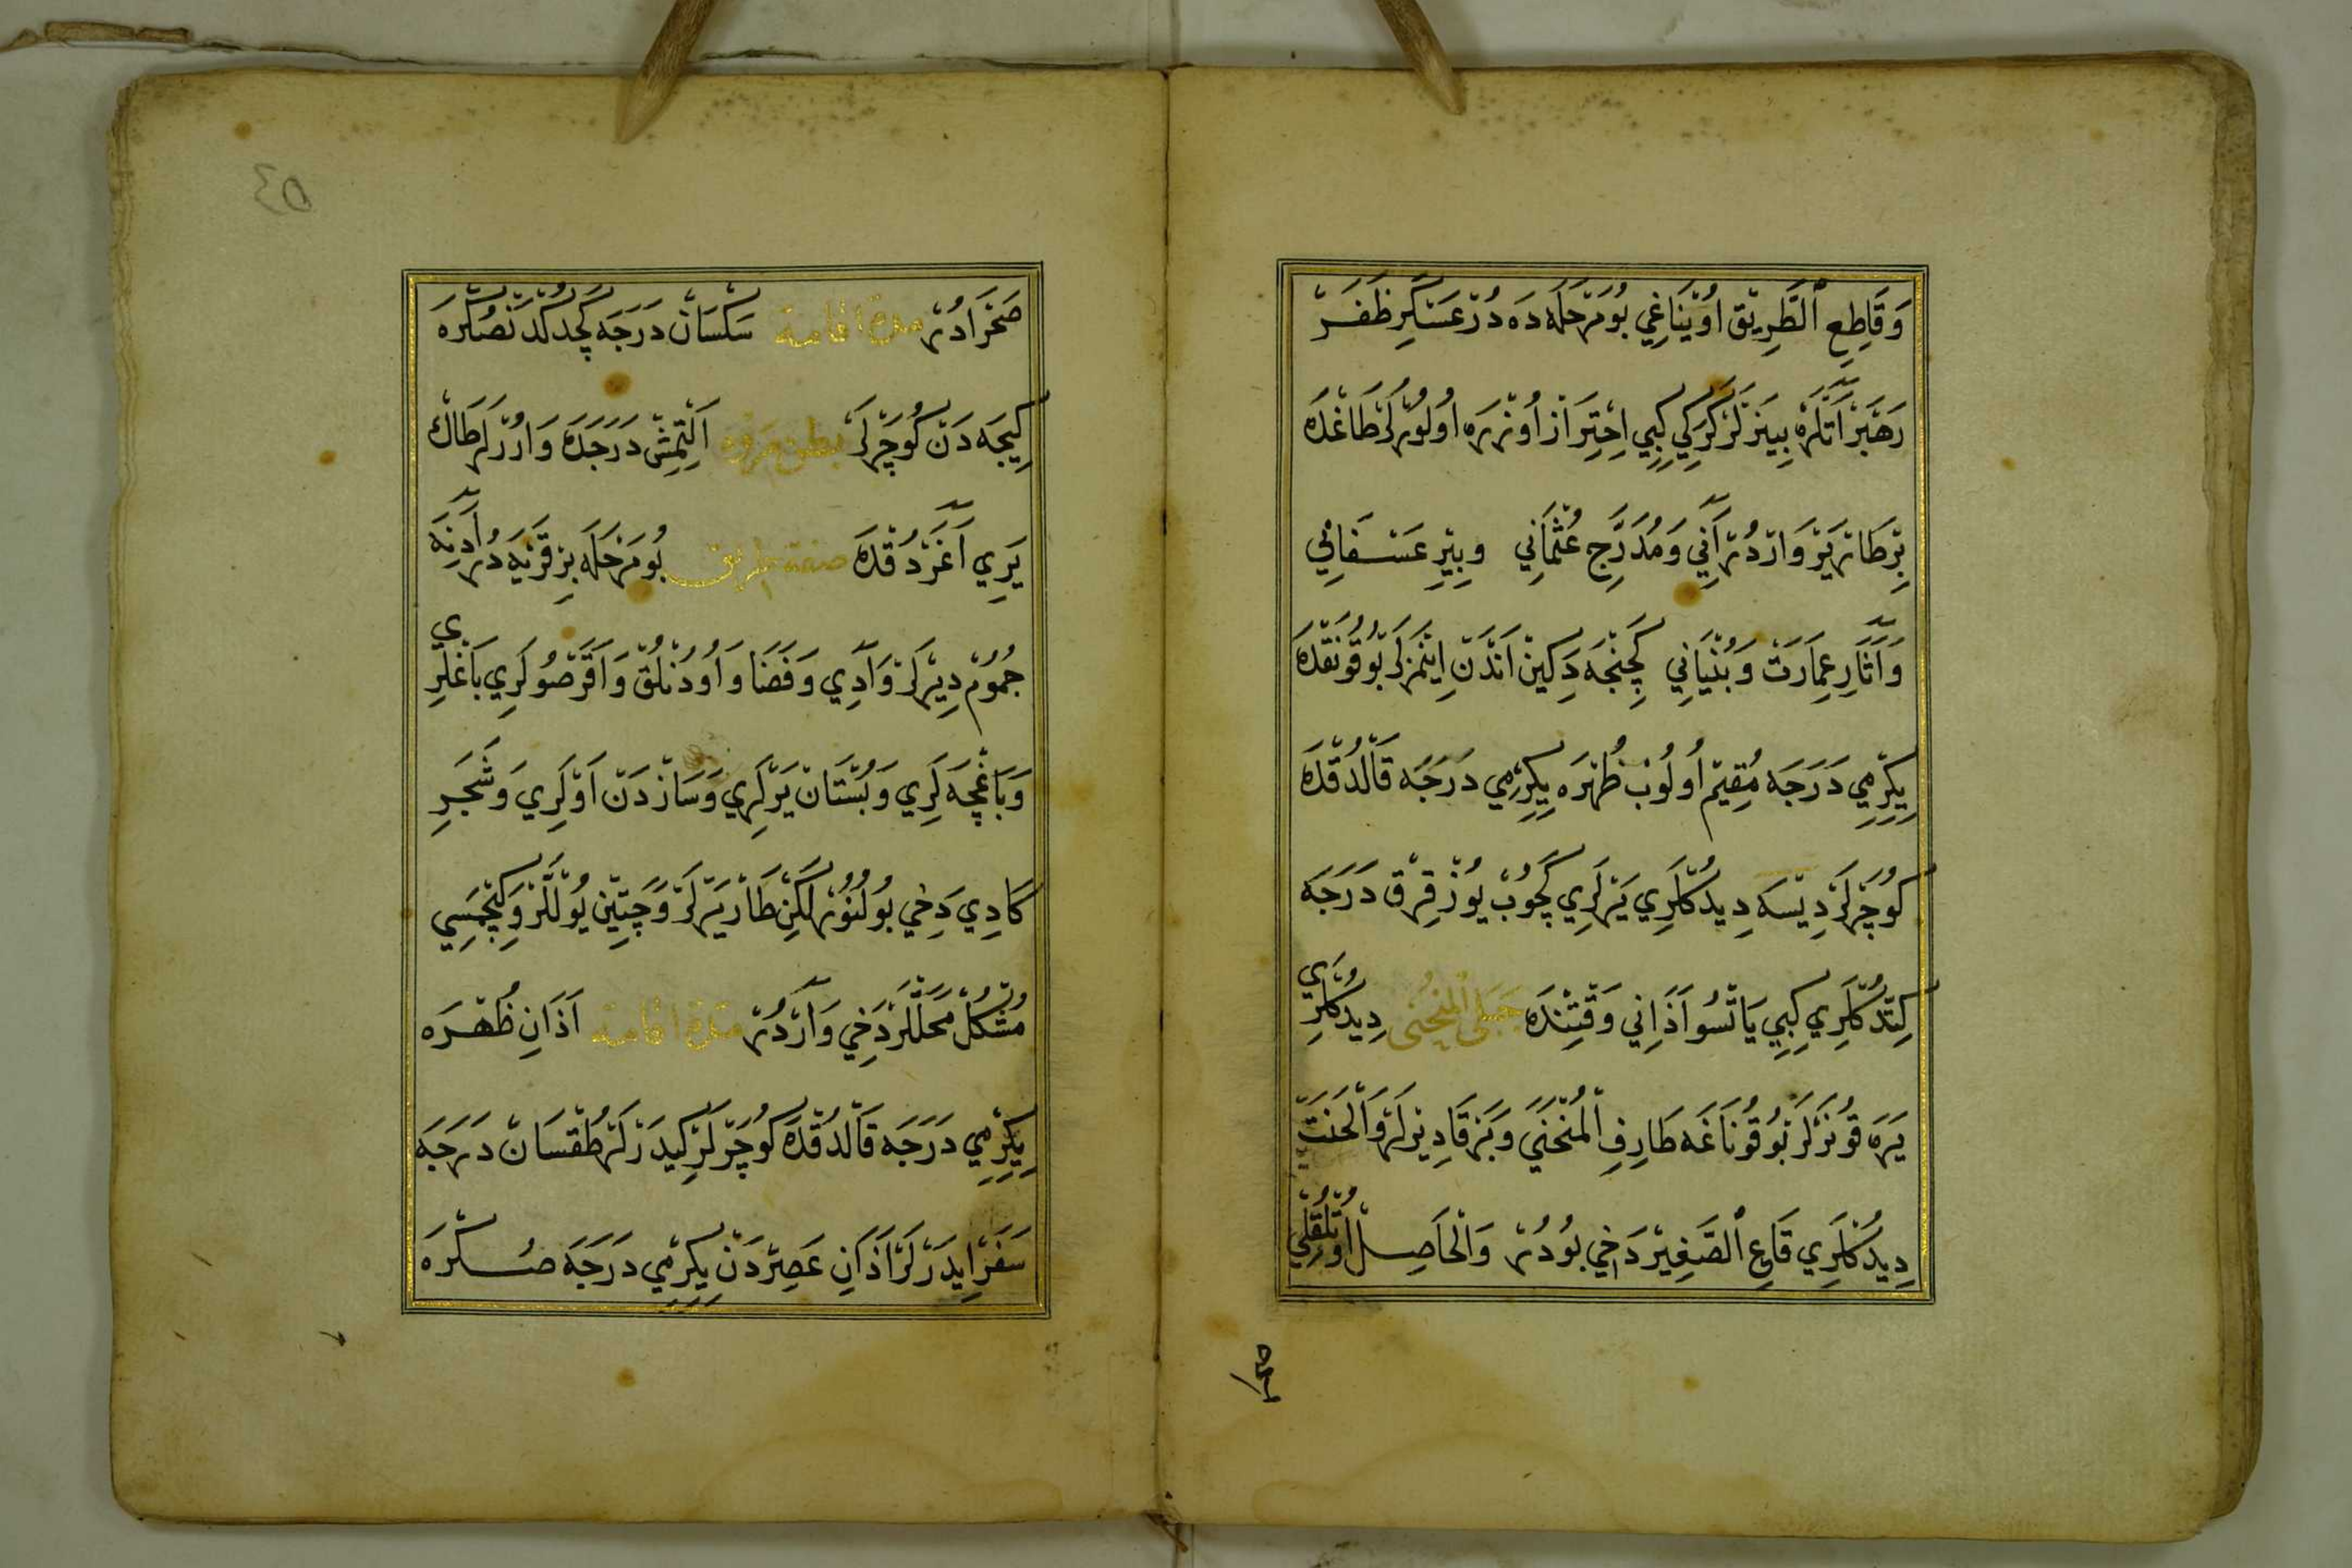 وَقَاطِعِ ٱلطَّرِيقْ اوُيْنَاغِي بُومَرْحَلَه دَه دُرْ عَسْكَرِ ظَفَرْ
رَهْبَرْ آتْلَرَه بِينَرْلَرْ كَرَكِي كِبِي اِحْتِرَازْ اُوزْرَه اوُلُورْلَرْ طَاغْدَه
بِرْ طَارْ يَرْ وَارْدُرْ آنِي وَمُدَرَّجِ عُثْمَانِي وبِيرِ عَسْفَانِي
وَآثَارِ عِمَارَتْ وَبُنْيَانِي كَچِنْجَه دَكِينْ آتْدَنْ اِينْمَزْلَرْ بُو قُونَقْدَه
يِكِرْمِي دَرَجَه مُقِيمْ اوُلُوبْ ظُهْرَه يِكِرْمِي دَرَجَه قَالْدُقْدَه
كُوچَرْلَرْ دِيْسَه دِيدُكْلَرِي يَرْلَرِي كَچُوبْ يُوزْ قِرْقْ دَرَجَه
كِتْدُكْلَرِي كِبِي يَاتْسُو اَذَانِي وَقْتِنْدَه جَبَلِ ٱلْمُنْحَنِى دِيدُكْلَرِي
يَرَه قُونَرْلَرْ بُو قُونَاغَه طَارِفِ ٱلْمُنْحَنَي وَبَرْقَا دِيرْلَرْ وَٱلْحَنَتْ
دِيدُكْلَرِي قَاعِ ٱلصَّغِيرْ دَخِي بُودُرْ وَٱلْحَاصِلْ اوُتْلُقْلِي
صَحْرَادُرْ مدة اقامة سَكْسَانْ دَرَجَه كَچْدُكْدَنْصُكْرَه
كِيجَه دَنْ كُوچَرْلَرْ بطن مروه اَلْتْمِشْ دَرَجَدَه وَارُرْلَرْ طَاكْ
يَرِي آغَرْدُقْدَه صفة طريق بُومَرْحَلَه بِرْ قَرْيَه دُرْ آدِنَه
جُمُومْ دِيرْلَرْ وَادِي وَفَضَا وَاوُدُنْلُقْ وَآقَرْصُولَرِي بَاغْلَرِي
وَبَاغْچَه لَرِي وَبُسْتَانْ يَرْلَرِي وَسَازْدَنْ اَوْلَرِي وَشَجَرِ
كَادِي دَخِي بُولُنُورْ لَكِنْ طَارْ يَرْلَرْ وَچَتِينْ يُوللَرْ وَكَچْمَسِي
مُشْكُلْ مَحَلْلَرْ دَخِي وَارْدُرْ مدة اقامة اَذَانِ ظُهْرَه
يِكِرْمِي دَرَجَه قَالْدُقْدَه كُوچَرْلَرْ كِيدَرْلَرْ طُقْسَانْ دَرَجَه
سَفَرْ اِيدَرْلَرْ اَذَانِ عَصِرْدَنْ يِكِرْمِي دَرَجَه صُكْرَه
٤٥